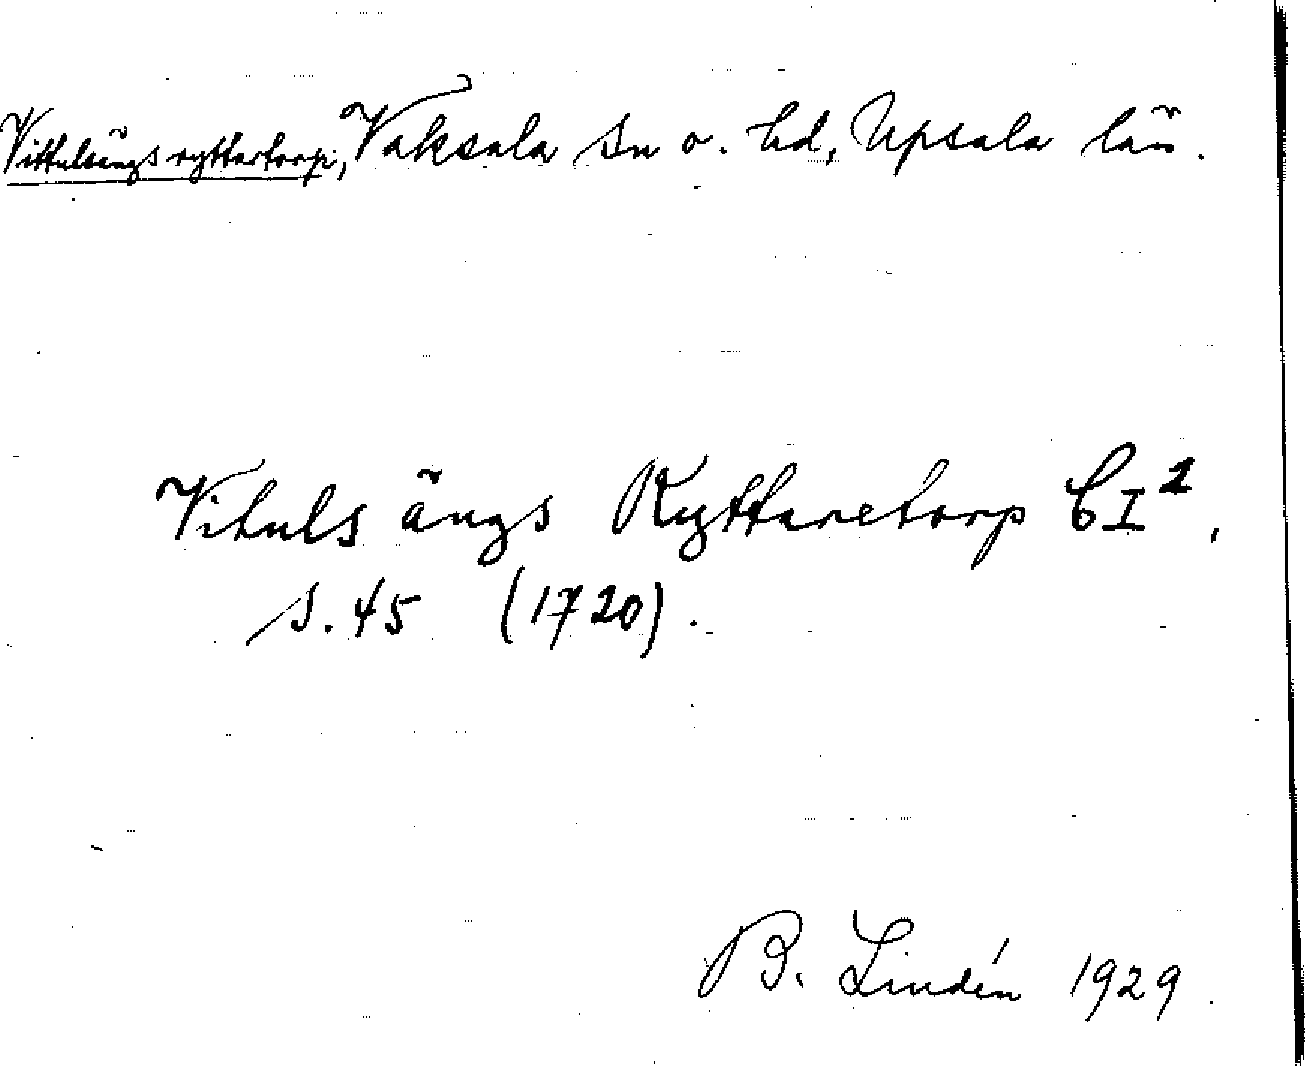 Vittulsängs ryttartorp, Vaksala sn o. hd, Upsala län.
Vituls ängs Ryttaretorp CI²,
s. 45 (1720).
B. Lindén 1929.